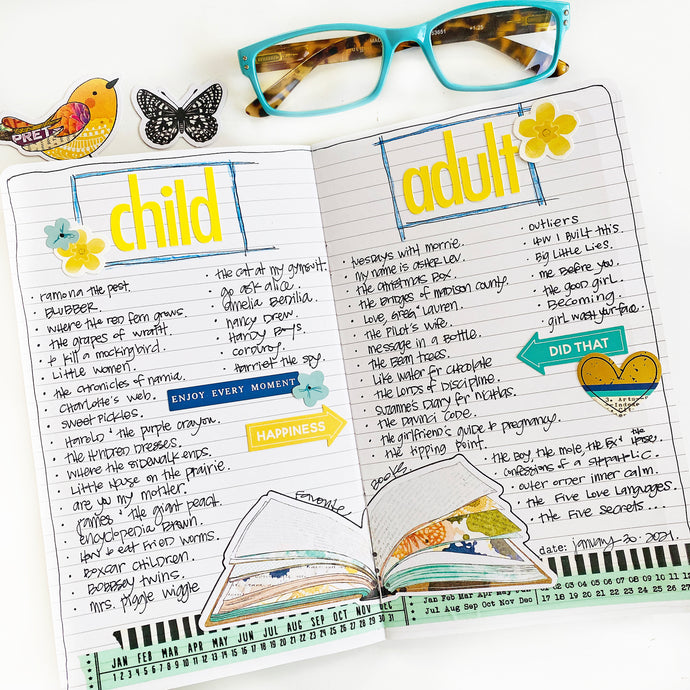 PRET
child
• ramona the pest.
• BLUBBER.
• where the red fern grows.
• the grapes of wrath.
• to kill a mockingbird.
• Little women.
• the chronicles of narnia.
• Charlotte's web.
• sweet Pickles.
• Harold & the purple crayon.
• the Hundred Dresses.
• where the sidewalk ends.
• Little House on the prairie.
• are you my mother.
• James & the giant peach.
• encyclopedia Brown.
• How to eat Fried worms.
• Boxcar Children.
• Bobbsey twins.
• mrs. piggle wiggle
• the cat at my gymsuit.
• go ask alice.
• amelia Bedilia.
• nancy drew.
• Hardy Boys.
• corduroy.
• harriet the spy.
ENJOY EVERY MOMENT
HAPPINESS
Favorite
JAN FEB MAR APR MAY JUN JUL AUG SEP OCT NOV DEC
1 2 3 4 5 6 7 8 9 10 11 12 13 14 15 16 17 18 19 20 21 22 23 24 25 26 27 28 29 30 31
adult
• Tuesdays with morrie.
• my name is asher Lev.
• the Christmas Box.
• the bridges of madison county.
• Love, Greg & Lauren.
• the Pilot's wife.
• message in a Bottle.
• the Bean trees.
• Like water for chocolate
• the Lords of Discipline.
• suzanne's Diary for nicholas.
• the Davinci Code.
• the girlfriend's guide to pregnancy.
• the tipping point.
• outliers
• How I Built this.
• Big Little Lies.
• me Before you.
• the good girl.
• Becoming.
• girl wash your face.
DID THAT
Books
• the Boy, the mole, the Fox & the Horse.
• confessions of a
• outer order inner calm.
• the Five Love Languages.
• the Five Secrets....
date: january 30. 2021
Jan Feb Mar Apr May Jun
Jul Aug Sep Oct Nov Dec
01 02 03 04 05 06 07 08 09 10 11 12 13 14 15 16
17 18 19 20 21 22 23 24 25 26 27 28 29 30 31